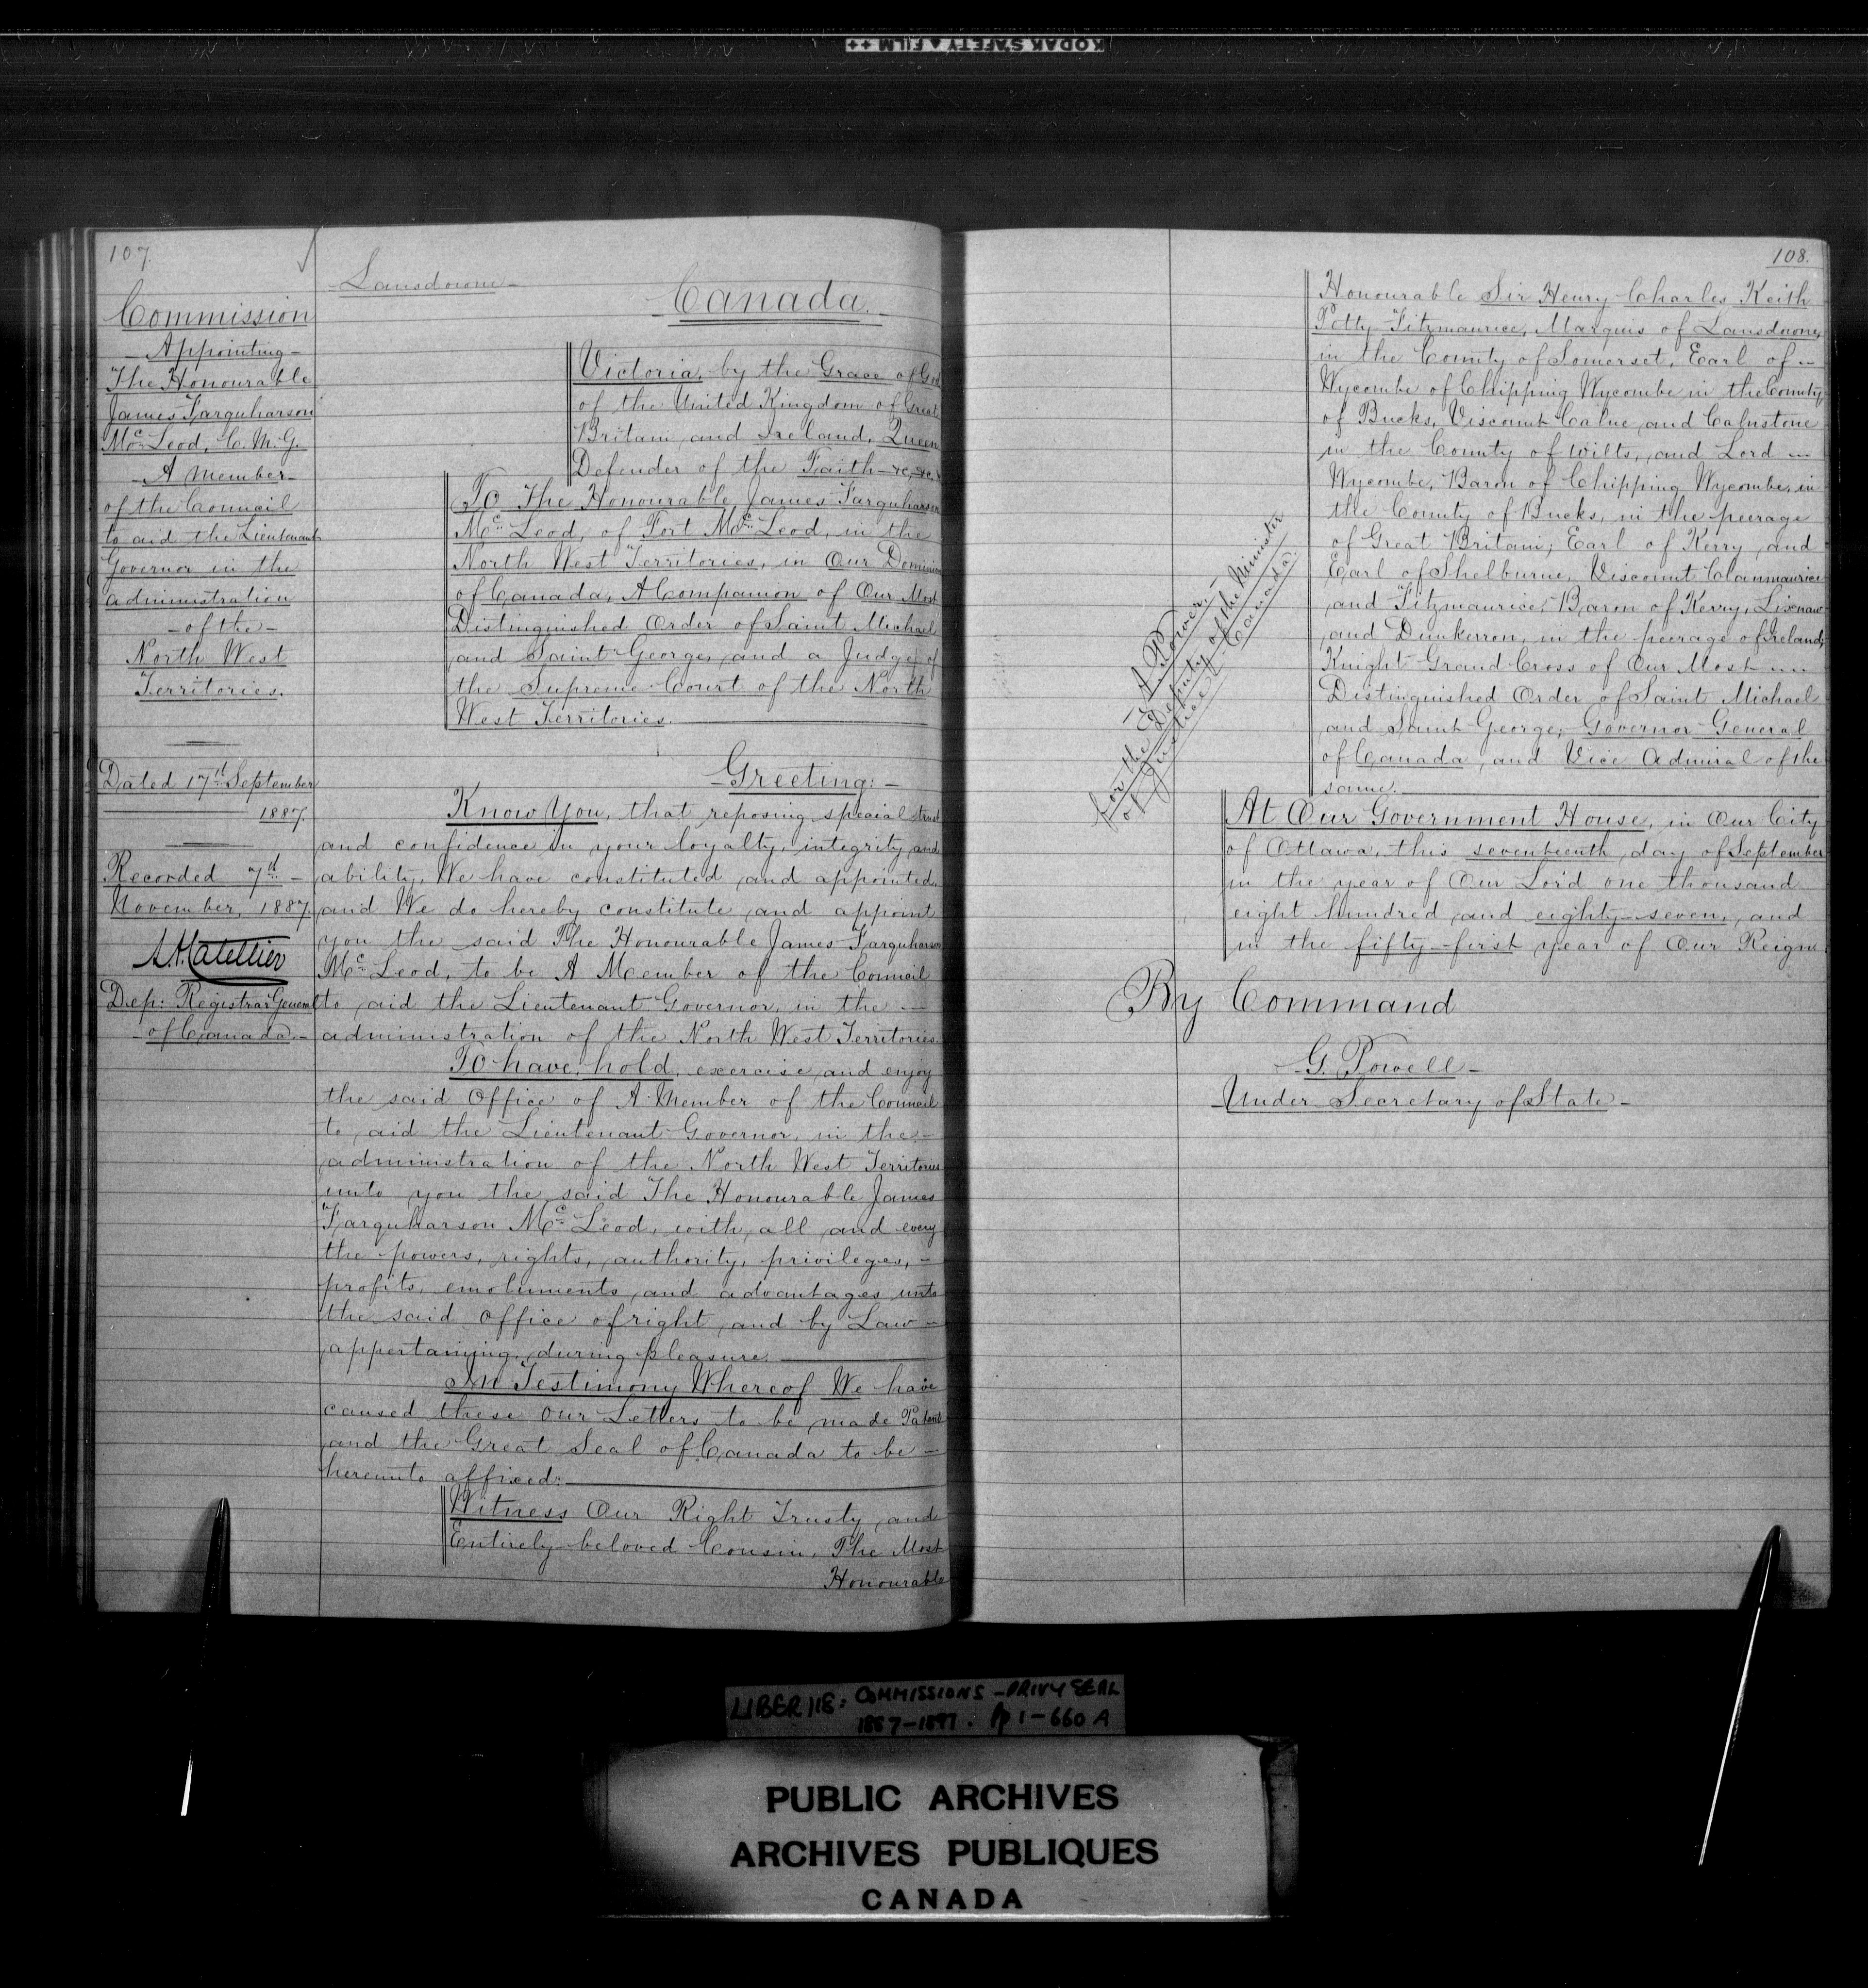 KODAK SAFETY FILM ++
107.
Commission
- Appointing -
The Honourable
James Farquharson
McLeod, C.M.G.
- A Member -
of the Council
to aid the Lieutenant
Governor in the
administration
- of the -
North West
Territories.
Dated 17th September
1887.
Recorded 7th -
November, 1887.
Dep: Registrar General
- of Canada -
Lansdowne -
Canada. -
Victoria, by the Grace of God
of the United Kingdom of Great
Britain and Ireland, Queen
Defender of the Faith - &c, &c, &c
To The Honourable James Farquharson
McLeod, of Fort McLeod, in the
North West Territories, in Our Dominion
of Canada, A Companion of Our Most
Distinguished Order of Saint Michael
and Saint George, and a Judge of
the Supreme Court of the North
West Territories.
- Greeting: -
Know You, that reposing special trust
and confidence in your loyalty, integrity and
ability, We have constituted and appointed,
and We do hereby constitute and appoint
you the said The Honourable James Farquharson
McLeod, to be A Member of the Council
to aid the Lieutenant Governor, in the -
administration of the North West Territories.
To have, hold, exercise and enjoy
the said Office of A Member of the Council
to aid the Lieutenant Governor, in the -
administration of the North West Territories
unto you the said The Honourable James
Farquharson McLeod, with all and every
the powers, rights, authority, privileges, -
profits, emoluments and advantages unto
the said Office of right and by Law -
appertaining, during pleasure.
In Testimony Whereof We have
caused these Our Letters to be made Patent
and the Great Seal of Canada to be -
hereunto affixed:
Witness Our Right Trusty and
Entirely beloved Cousin, The Most
Honourable
108.
Honourable Sir Henry Charles Keith
Petty-Fitzmaurice, Marquis of Lansdowne,
in the County of Somerset, Earl of -
Wycombe of Chipping Wycombe in the County
of Bucks, Viscount Calne and Calnstone
in the County of Wilts, and Lord -
Wycombe, Baron of Chipping Wycombe, in
the County of Bucks, in the peerage
of Great Britain; Earl of Kerry and
Earl of Shelburne, Viscount Clanmaurice
and Fitzmaurice, Baron of Kerry, Lixnaw
and Dunkerron, in the peerage of Ireland;
Knight Grand Cross of Our Most -
Distinguished Order of Saint Michael
and Saint George; Governor General
of Canada, and Vice Admiral of the
same.
- A. Power. -
for the Deputy of the Minister
of Justice. Canada.
At Our Government House, in Our City
of Ottawa, this seventeenth day of September
in the year of Our Lord one thousand
eight hundred and eighty-seven, and
in the fifty-first year of Our Reign.
By Command
- G. Powell -
- Under Secretary of State -
LIBER 118: COMMISSIONS - PRIVY SEAL
1887-1897. pp 1-660 A
PUBLIC ARCHIVES
ARCHIVES PUBLIQUES
CANADA